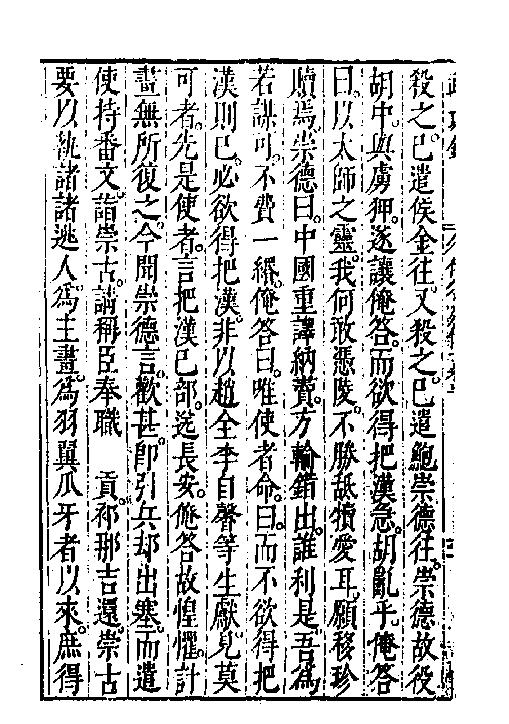 殺之。已遣侯金往。又殺之。已遣鮑崇德往。崇德故役
胡中。與虜狎。遂讓俺答。而欲得把漢急。胡亂乎。俺答
曰。以太師之靈。我何敢憑陵。不勝舐犢愛耳。願移珍
贖焉。崇德曰。中國重譯納贄。方輪錯出。誰利是。吾為
若謀可。不費一緡。俺答曰。唯使者命。曰。而不欲得把
漢則已。必欲得把漢。非以趙全李自馨等生獻。見莫
可者。先是使者。言把漢已部送長安。俺答故惶懼。計
畫無所復之。今聞崇德言。歡甚。即引兵却出塞。而遣
使持番文。詣崇古。請稱臣奉職　貢。祁那吉還。崇古
要以執諸諸逃人。為主畫。為羽翼爪牙者以來。庶得